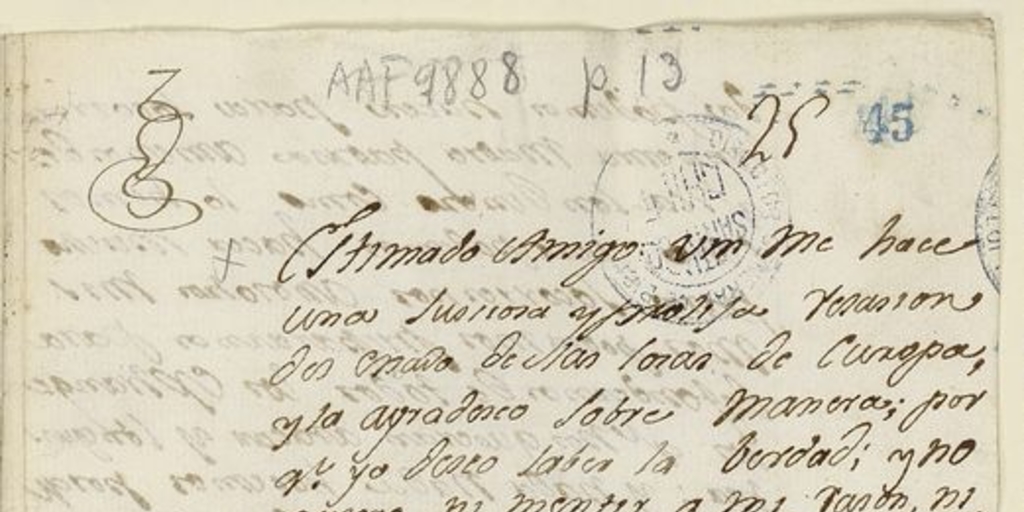 AAF 9888 p. 13
25
45
Estimado Amigo. Vm me hace
una lustrosa y prolija relasion
del estado de las cosas de Europa,
y la agradesco sobre manera; por
q.e yo deseo saber la berdad; y no
ni mentir a mi rason, ni